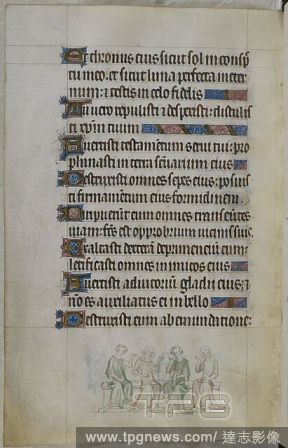 Et thronus eius sicut sol in conspec
tu meo. et sicut luna perfecta in eter
num: et testis in celo fidelis
Tu vero repulisti et despexisti: distulis
ti xpm tuum
Evertisti testamentum servi tui: pro
phanasti in terra sanctuarium eius
Destruxisti omnes sepes eius: posuis
ti firmamentum eius formidinem
Diripuerunt eum omnes transeuntes
viam: factus est opprobrium vicinis suis
Exaltasti dexteram deprimentium eum:
letificasti omnes inimicos eius
Avertisti adiutorium gladii eius: et
non es auxiliatus ei in bello
Destruxisti eum ab emundatione:
TPG
www.tpgnews.com/ 達志影像